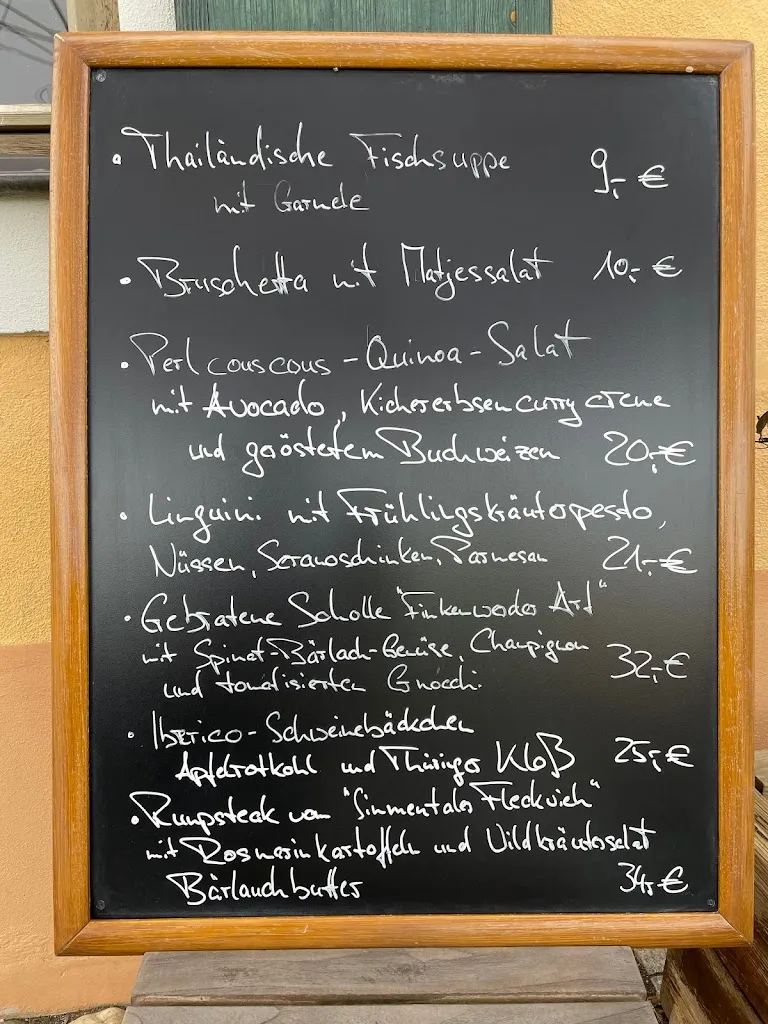 • Thailändische Fischsuppe 9,- €
mit Garnele
• Bruschetta mit Matjessalat 10,- €
• Perlcouscous - Quinoa - Salat
mit Avocado, Kichererbsencurrycreme
und geröstetem Buchweizen 20,- €
• Linguini mit Frühlingskräuterpesto,
Nüssen, Serranoschinken, Parmesan 21,- €
• Gebratene Scholle "Finkenwerder Art"
mit Spinat-Bärlach-Gemüse, Champignon
und tomatisierten Gnocchi. 32,- €
• Iberico - Schweinebäckchen
Apfelrotkohl und Thüringer Kloß 25,- €
• Rumpsteak vom "Simmentaler Fleckvieh"
mit Rosmarinkartoffeln und Wildkräutersalat
Bärlauchbutter 34,- €